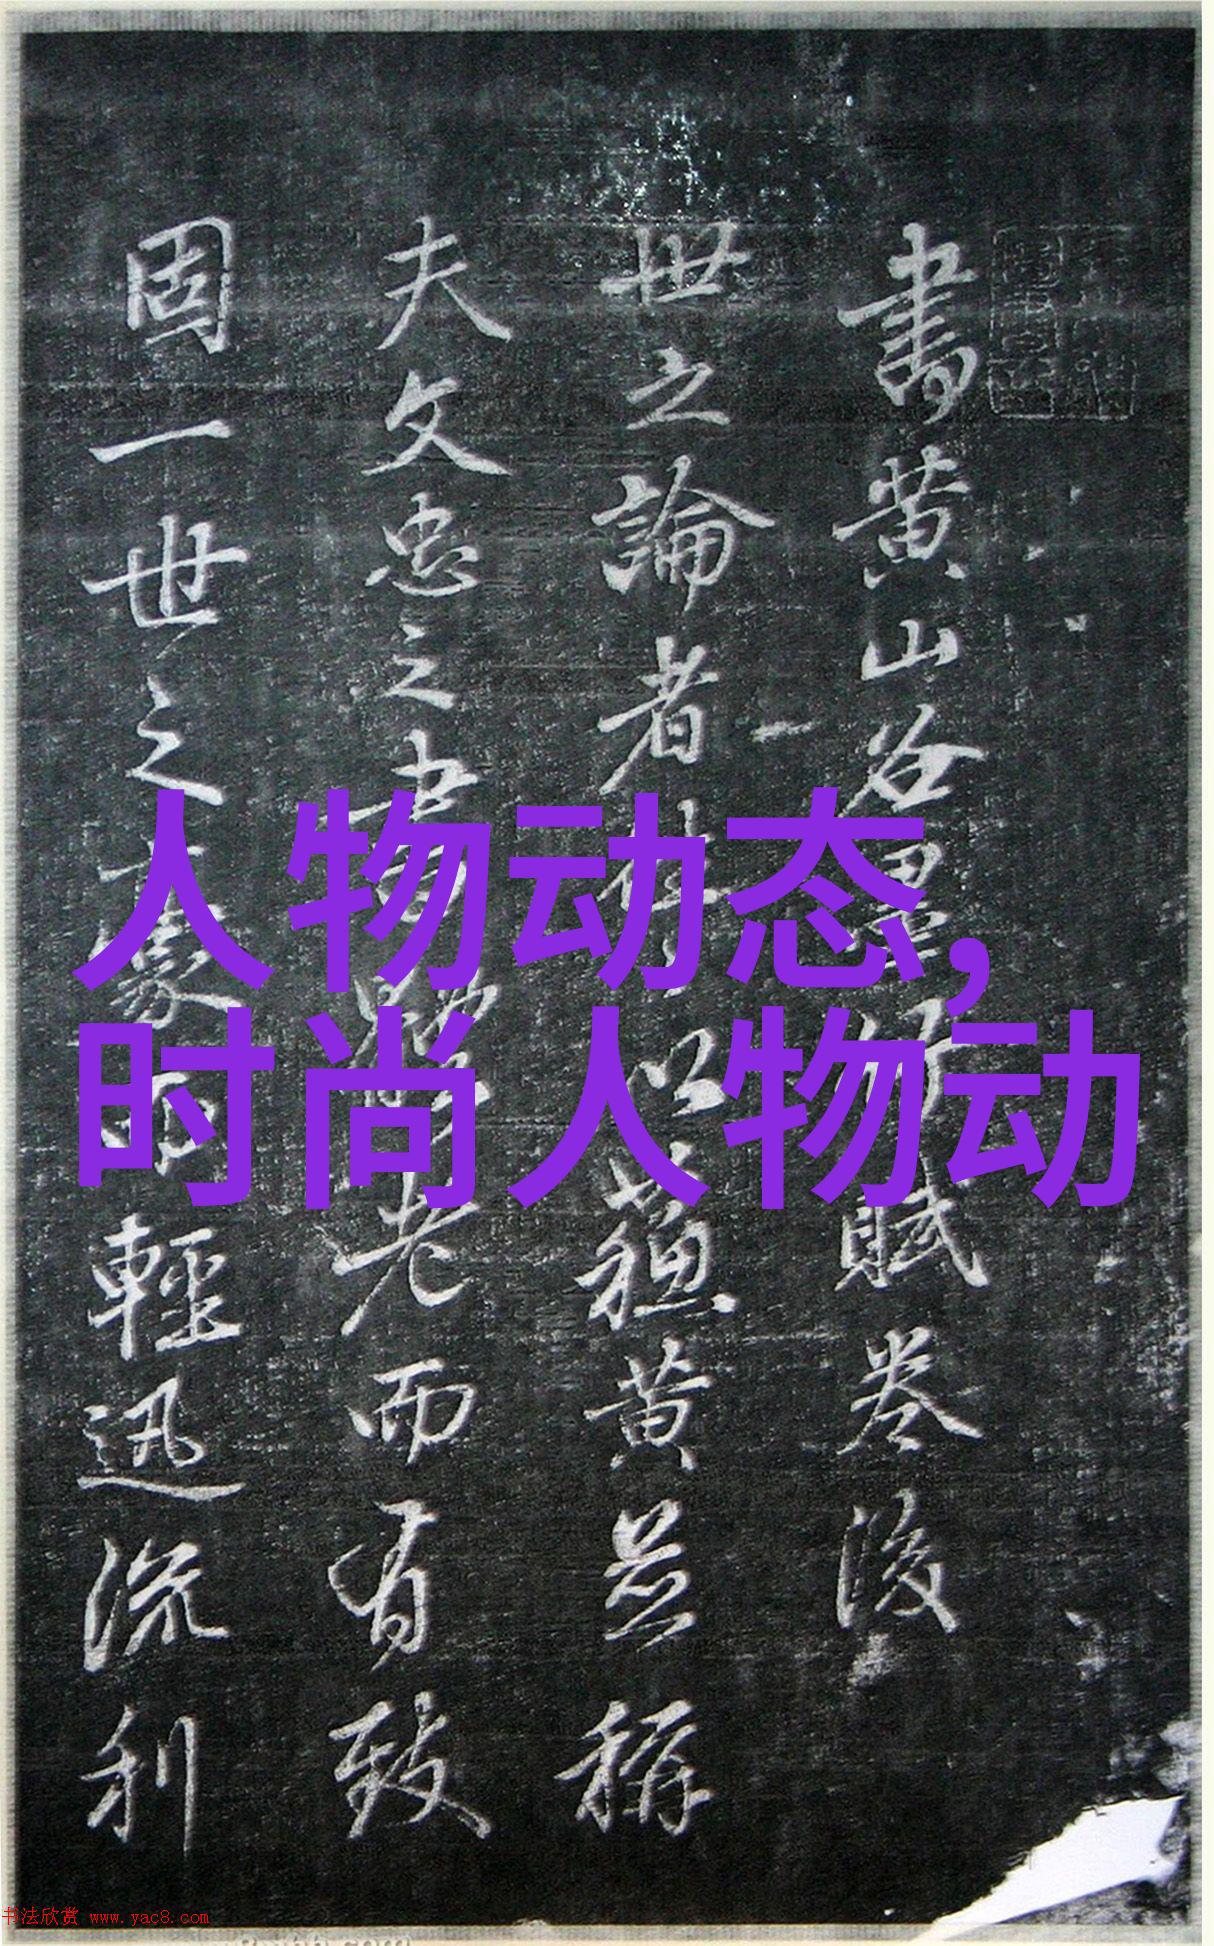 書黄山谷墨賦卷後
世之論者以蘓黄並稱
夫文忠之書體老而有致
固一世之豪而輕迅流利
人物动态,
时尚人物动
书法欣赏 www.yac8.com